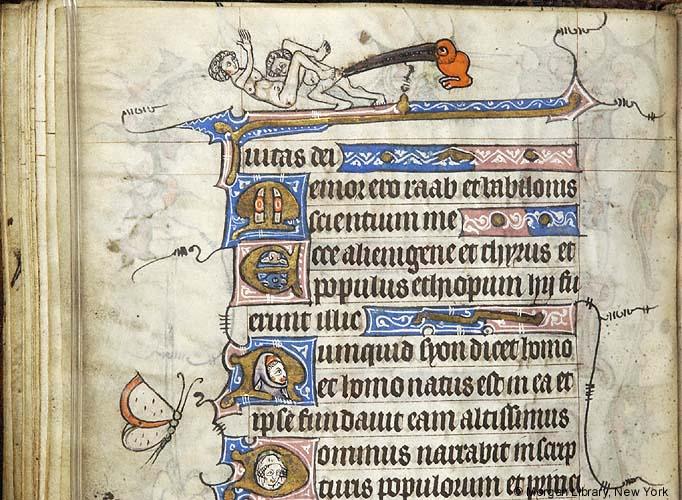 iuitas dei
Memor ero raab et babilonis
scientium me
Ecce alienigene et thyrus et
populus ethiopum hii fu
erunt illic
Numquid syon dicet homo
et homo natus est in ea et
ipse fundauit eam altissimus
Dominus narrabit in scrip
turis populorum et princi
© Morgan Library, New York